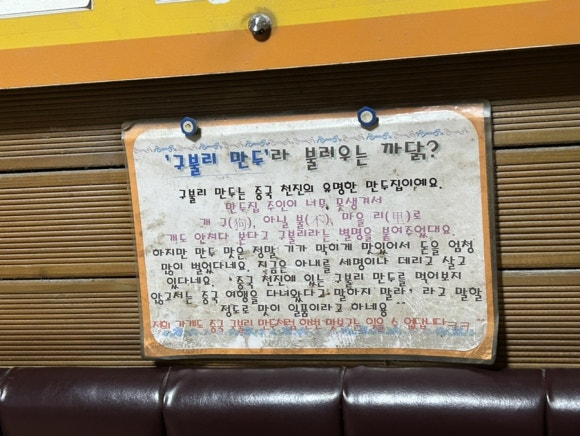 '구불리 만두'라 불리우는 까닭?
구불리 만두는 중국 천진의 유명한 만두집이예요.
만두집 주인이 너무 못생겨서
개 구(狗), 아닐 불(不), 마을 리(里)로
개도 안쳐다 본다고 구불리라는 별명을 붙여주었대요.
하지만 만두 맛은 정말 기가 막히게 맛있어서 돈을 엄청
많이 벌었다네요. 지금은 아내를 세명이나 데리고 살고
있다네요. '중국 천진에 있는 구불리 만두를 먹어보지
않고서는 중국 여행을 다녀왔다고 말하지 말라' 라고 말할
정도로 맛이 일품이라고 하네용 ^^
저희 가게도 중국 구불리 만두처럼 한번 맛보구는 잊을 수 없답니다ㅋㅋ